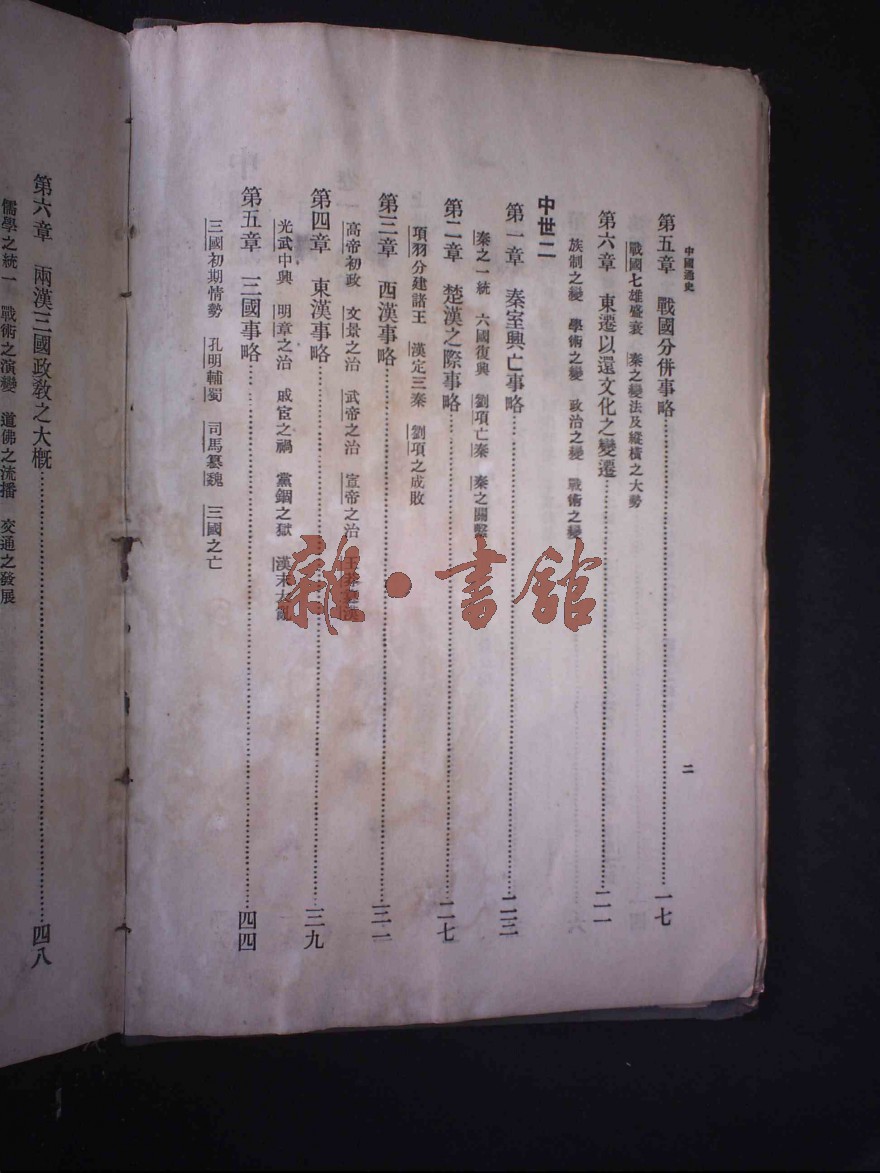 中國通史
二
第五章 戰國分併事略……一七
戰國七雄盛衰 秦之變法及縱橫之大勢
第六章 東遷以還文化之變遷……二一
族制之變 學術之變 政治之變 戰術之變
中世二
第一章 秦室興亡事略……二三
秦之一統 六國復興 劉項亡秦 秦之關繫
第二章 楚漢之際事略……二七
項羽分建諸王 漢定三秦 劉項之成敗
第三章 西漢事略……三一
高帝初政 文景之治 武帝之治 宣帝之治
第四章 東漢事略……三九
光武中興 明章之治 戚宦之禍 黨錮之獄 漢末大亂
第五章 三國事略……四四
三國初期情勢 孔明輔蜀 司馬篡魏 三國之亡
第六章 兩漢三國政教之大概……四八
儒學之統一 戰術之演變 道佛之流播 交通之發展
雜·書館